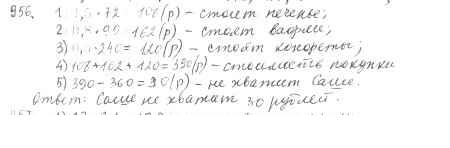 956. 1. 1,5 · 72 108 (р) – стоит печенье;
2. 1,8 · 90 162 (р) – стоят вафли;
3) 0,5 · 240 = 120 (р) – стоят конфеты;
4) 108 + 162 + 120 = 390 (р) – стоимость покупки
5) 390 – 360 = 30 (р) – не хватит Саше.
Ответ: Саше не хватит 30 рублей.